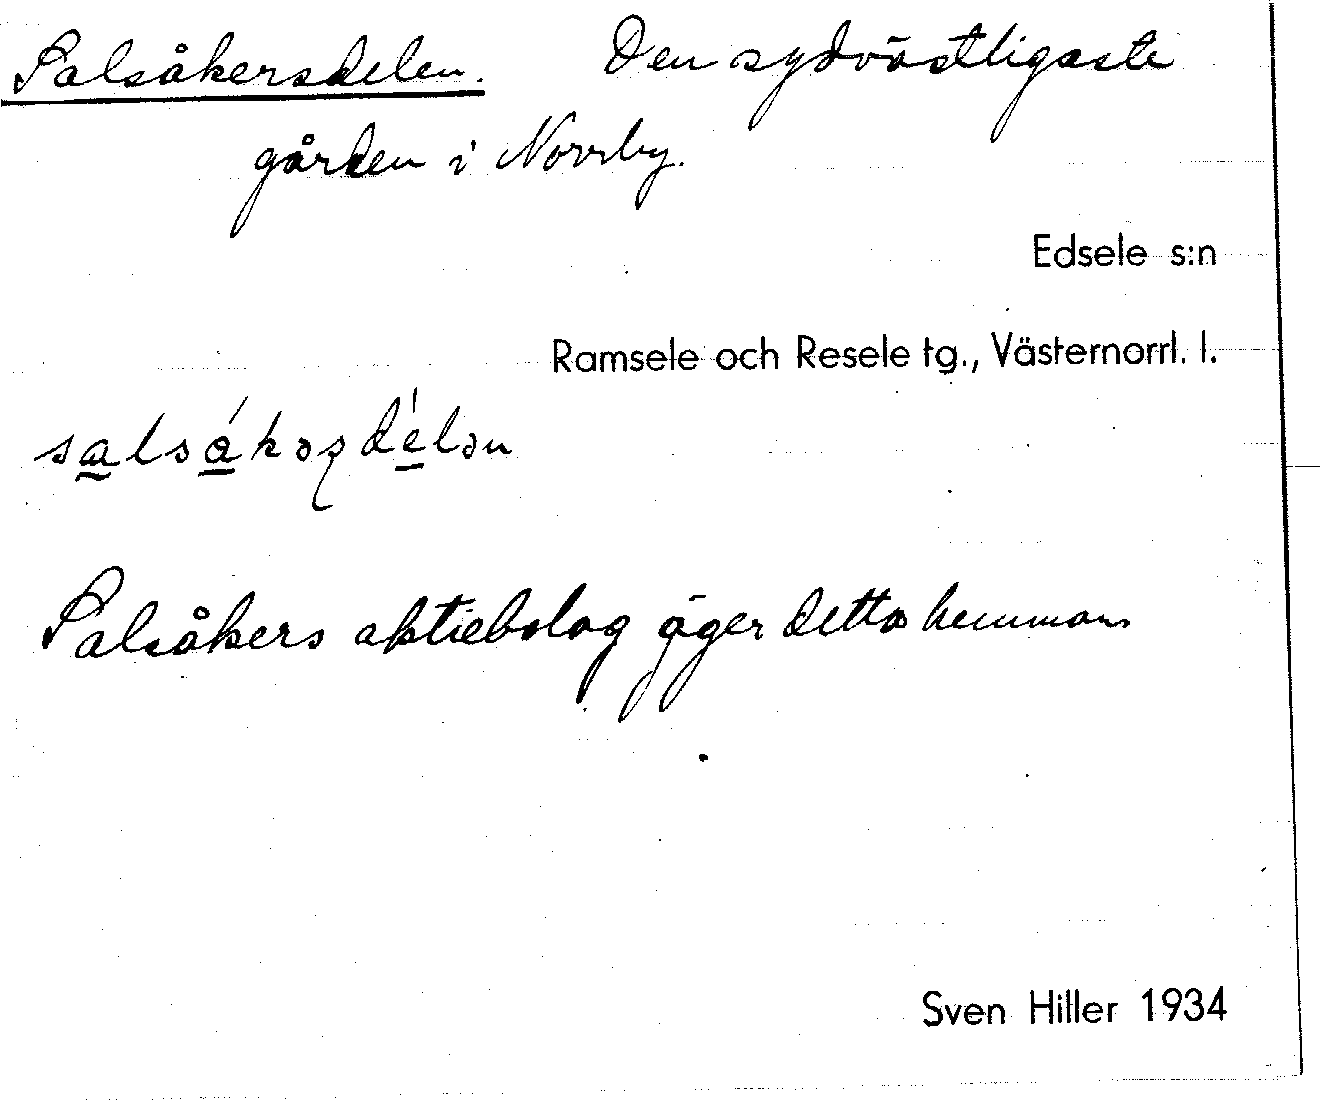 Salsåkersdelen. Den sydvästligaste
gården i Norrby.
Edsele s:n
Ramsele och Resele tg., Västernorrl. l.
salsåkəʂdélən
Salsåkers aktiebolag äger detta hemman
Sven Hiller 1934